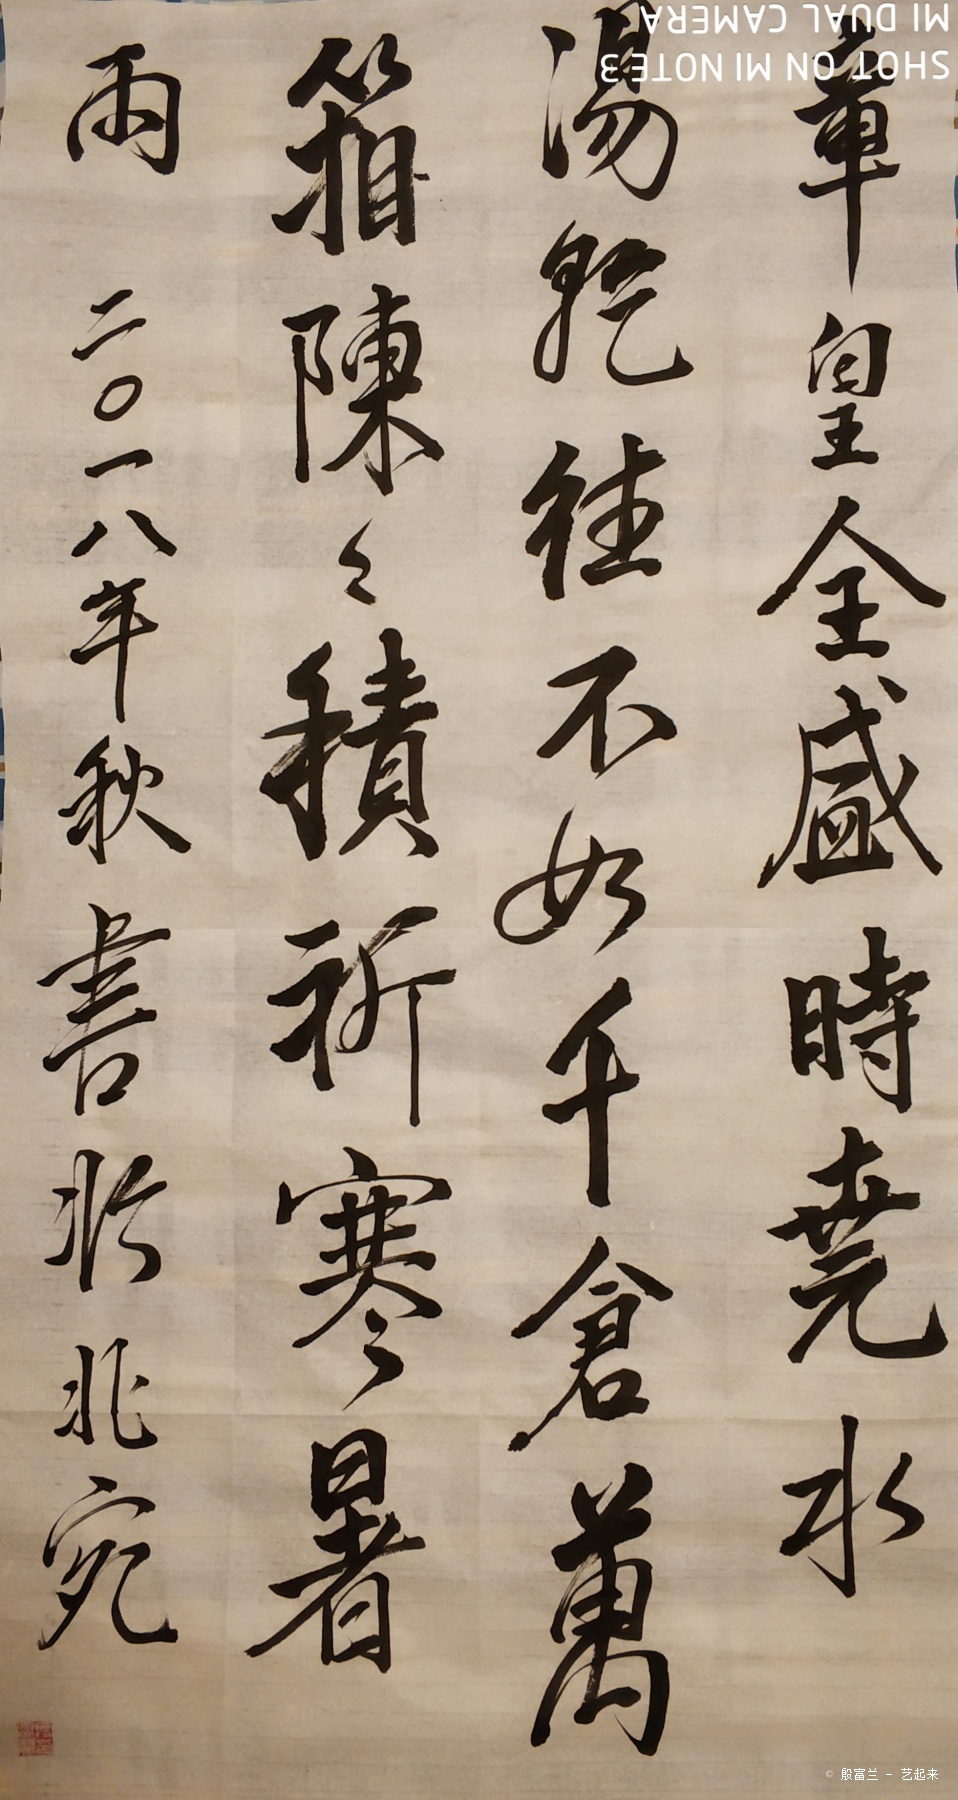 章皇全盛時堯水
湯乾往不如千倉萬
箱陳々積祈寒暑
雨 二〇一八年秋書於北宛
SHOT ON MI NOTE3
MI DUAL CAMERA
© 殷富兰 - 艺起来